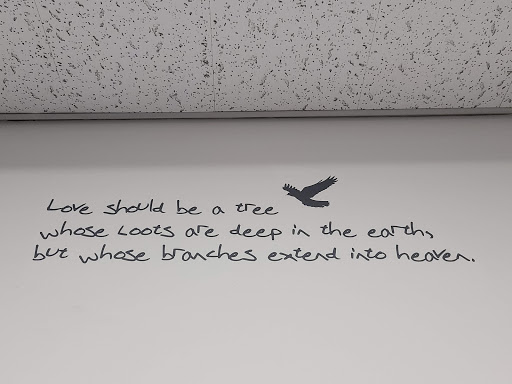 Love should be a tree
whose Loots are deep in the earth,
but whose branches extend into heaven.